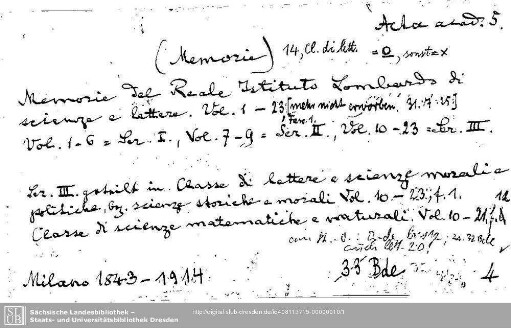 Acta acad. 5.
(Memorie) 14, Cl. di lett. = o, sonst = x
Memorie del Reale Istituto Lombardo di
scienze e lettere. Vol. 1 - 23 [mehr nicht erworben. 31.
fasc. 1.
Vol. 1-6 = Ser. I., Vol. 7-9 = Ser. II., Vol. 10-23 = Ser. III.
Ser. III. geteilt in Classe di lettere e scienze morali e
politiche, bz. scienze storiche e morali Vol. 10 - 23, f. 1. 12
Classe di scienze matematiche e naturali. Vol. 10 - 21, f.
Milano 1843 - 1914 33 Bde 4
SLUB
Sächsische Landesbibliothek –
Staats- und Universitätsbibliothek Dresden